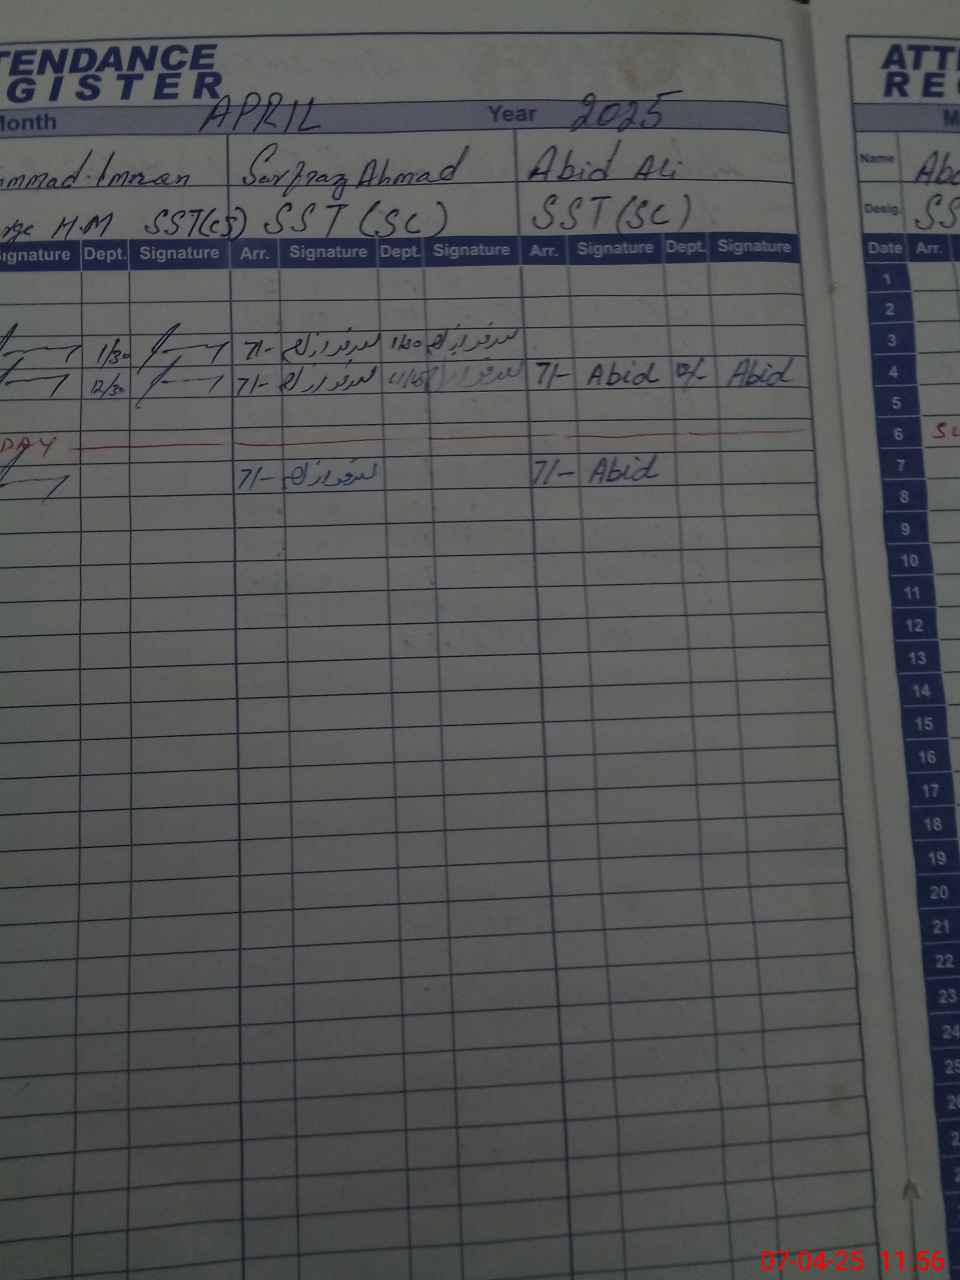 TENDANCE ATT
GISTER RE
Month APRIL Year 2025 M
mmad Imran Sarfraz Ahmad Abid Ali Name Abd
H.M SST(CS) SST (SC) SST (SC) Desig. SS
ignature Dept. Signature Arr. Signature Dept. Signature Arr. Signature Dept. Signature Date Arr.
1
2
1/30 7/- سرفراز احمد 1/30 سرفراز احمد 3
12/30 7/- سرفراز احمد سرفراز 7/- Abid 12/- Abid 4
5
DAY 6 SU
7/- سرفراز احمد 7/- Abid 7
8
9
10
11
12
13
14
15
16
17
18
19
20
21
22
23
24
25
07-04-25 11:56